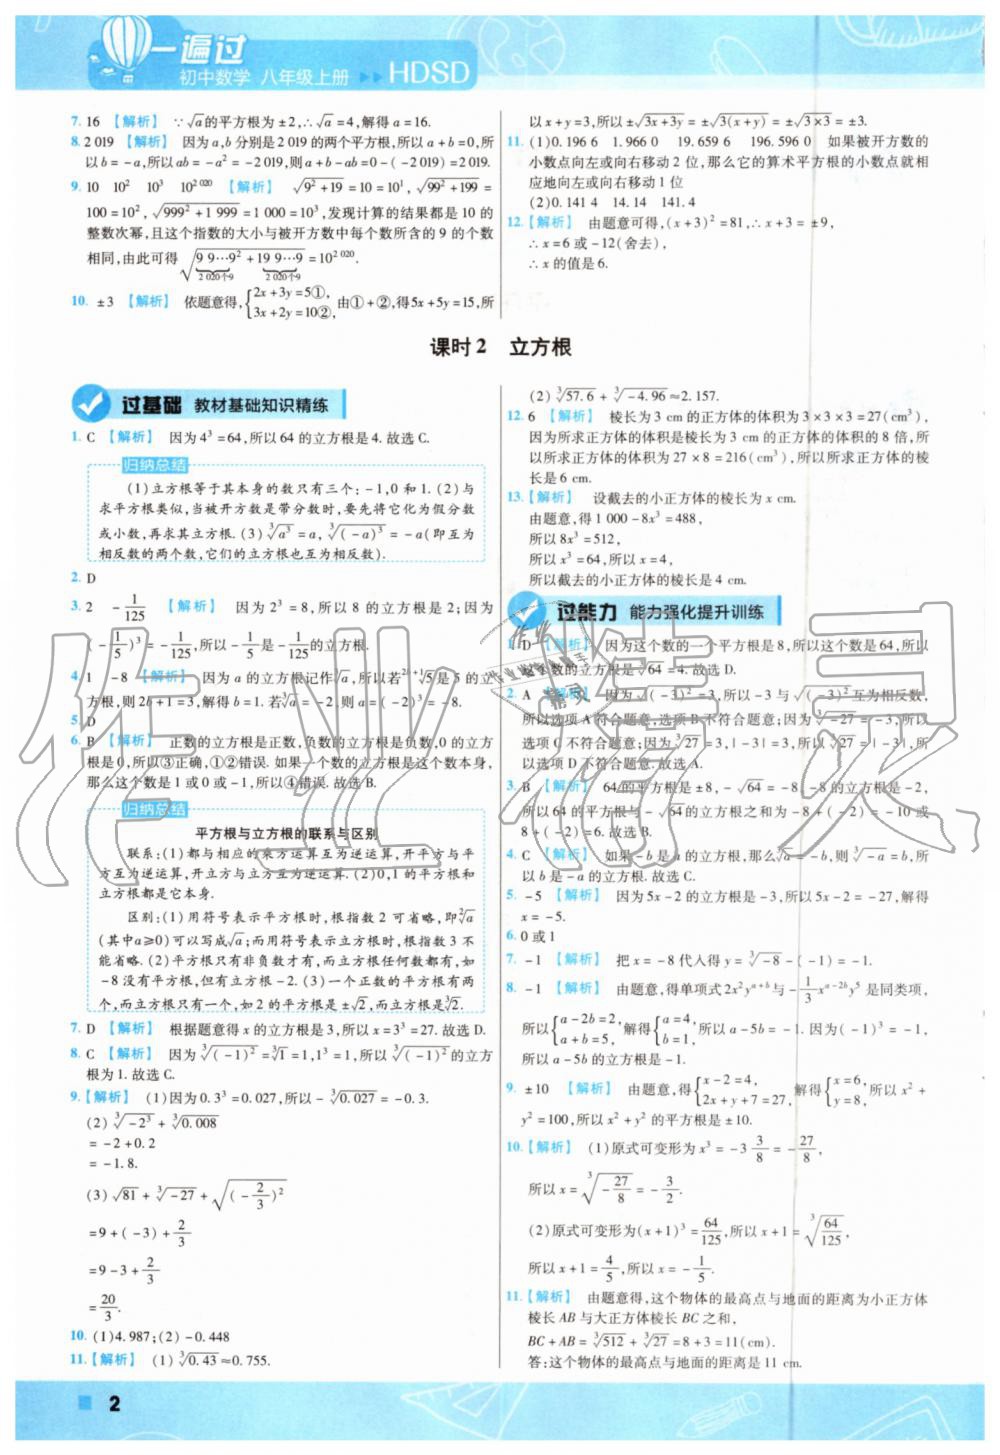 一遍过
初中数学 八年级上册 HDSD
7. 16 【解析】 ∵√a的平方根为±2,∴√a=4,解得a=16.
8. 2 019 【解析】 因为a,b分别是2 019的两个平方根,所以a+b=0,所
以b=-a,所以ab=-a²=-2 019,则a+b-ab=0-(-2 019)=2 019.
9. 10 10² 10³ 10²⁰²⁰ 【解析】 √(9²+19)=10=10¹,√(99²+199)=
100=10²,√(999²+1 999)=1 000=10³,发现计算的结果都是10的
整数次幂,且这个指数的大小与被开方数中每个数所含的9的个数
相同,由此可得√(9 9…9²+19 9…9)=10²⁰²⁰.
2 020个9 2 020个9
10. ±3 【解析】 依题意得,{2x+3y=5①, 3x+2y=10②, 由①+②,得5x+5y=15,所
以x+y=3,所以±√(3x+3y)=±√(3(x+y))=±√(3×3)=±3.
11. (1)0.196 6 1.966 0 19.659 6 196.596 0 如果被开方数的
小数点向左或向右移动2位,那么它的算术平方根的小数点就相
应地向左或向右移动1位
(2)0.141 4 14.14 141.4
12.【解析】 由题意可得,(x+3)²=81,∴x+3=±9,
∴x=6或-12(舍去),
∴x的值是6.
课时2 立方根
过基础 教材基础知识精练
1. C 【解析】 因为4³=64,所以64的立方根是4.故选C.
归纳总结
(1)立方根等于其本身的数只有三个:-1,0和1.(2)与
求平方根类似,当被开方数是带分数时,要先将它化为假分数
或小数,再求其立方根.(3)∛a³=a,∛(-a)³=-a(即互为
相反数的两个数,它们的立方根也互为相反数).
2. D
3. 2 -1/125 【解析】 因为2³=8,所以8的立方根是2;因为
(-1/5)³=-1/125,所以-1/5是-1/125的立方根.
4. 1 -8 【解析】 因为a的立方根记作∛a,所以若²ᵇ⁺¹√5是5的立
方根,则2b+1=3,解得b=1.若∛a=-2,则a=(-2)³=-8.
5. D
6. B 【解析】 正数的立方根是正数,负数的立方根是负数,0的立方
根是0,所以③正确,①②错误.如果一个数的立方根是这个数本身,
那么这个数是1或0或-1,所以④错误.故选B.
归纳总结
平方根与立方根的联系与区别
联系:(1)都与相应的乘方运算互为逆运算,开平方与平
方互为逆运算,开立方与立方互为逆运算.(2)0,1的平方根和
立方根都是它本身.
区别:(1)用符号表示平方根时,根指数2可省略,即²√a
(其中a≥0)可以写成√a;而用符号表示立方根时,根指数3不
能省略.(2)平方根只有非负数才有,而立方根任何数都有,如
-8没有平方根,但有立方根-2.(3)一个正数的平方根有两
个,而立方根只有一个,如2的平方根是±√2,而立方根是∛2.
7. D 【解析】 根据题意得x的立方根是3,所以x=3³=27.故选D.
8. C 【解析】 因为∛(-1)²=∛1=1,1³=1,所以∛(-1)²的立方
根为1.故选C.
9.【解析】 (1)因为0.3³=0.027,所以-∛0.027=-0.3.
(2)∛-2³+∛0.008
=-2+0.2
=-1.8.
(3)√81+∛-27+√(-2/3)²
=9+(-3)+2/3
=9-3+2/3
=20/3.
10. (1)4.987;(2)-0.448
11.【解析】 (1)∛0.43≈0.755.
(2)∛57.6+∛-4.96≈2.157.
12. 6 【解析】 棱长为3 cm的正方体的体积为3×3×3=27(cm³),
因为所求正方体的体积是棱长为3 cm的正方体的体积的8倍,所
以所求正方体的体积为27×8=216(cm³),所以所求正方体的棱
长是6 cm.
13.【解析】 设截去的小正方体的棱长为x cm.
由题意,得1 000-8x³=488,
所以8x³=512,
所以x³=64,所以x=4,
所以截去的小正方体的棱长是4 cm.
过能力 能力强化提升训练
1. D 【解析】 因为这个数的一个平方根是8,所以这个数是64,所以
这个数的立方根是∛64=4.故选D.
2. A 【解析】 因为√(-3)²=3,所以-3与√(-3)²互为相反数,
所以选项A符合题意,选项B不符合题意;因为∛-27=-3,所以
选项C不符合题意;因为∛27=3,|-3|=3,所以∛27=|-3|,所
以选项D不符合题意.故选A.
3. B 【解析】 64的平方根是±8,-√64=-8,-8的立方根是-2,
所以64的平方根与-√64的立方根之和为-8+(-2)=-10或
8+(-2)=6.故选B.
4. C 【解析】 如果-b是a的立方根,那么∛a=-b,则∛-a=b,所
以b是-a的立方根.故选C.
5. -5 【解析】 因为5x-2的立方根是-3,所以5x-2=-27,解得
x=-5.
6. 0或1
7. -1 【解析】 把x=-8代入得y=∛-8-(-1)=-1.
8. -1 【解析】 由题意,得单项式2x²yᵃ⁺ᵇ与-1/3xᵃ⁻²ᵇy⁵是同类项,
所以{a-2b=2, a+b=5, 解得{a=4, b=1, 所以a-5b=-1.因为(-1)³=-1,
所以a-5b的立方根是-1.
9. ±10 【解析】 由题意,得{x-2=4, 2x+y+7=27, 解得{x=6, y=8, 所以x²+
y²=100,所以x²+y²的平方根是±10.
10.【解析】 (1)原式可变形为x³=-3 3/8=-27/8,
所以x=∛(-27/8)=-3/2.
(2)原式可变形为(x+1)³=64/125,所以x+1=∛(64/125),
所以x+1=4/5,所以x=-1/5.
11.【解析】 由题意得,这个物体的最高点与地面的距离为小正方体
棱长AB与大正方体棱长BC之和,
BC+AB=∛512+∛27=8+3=11(cm).
答:这个物体的最高点与地面的距离是11 cm.
2
作业精灵